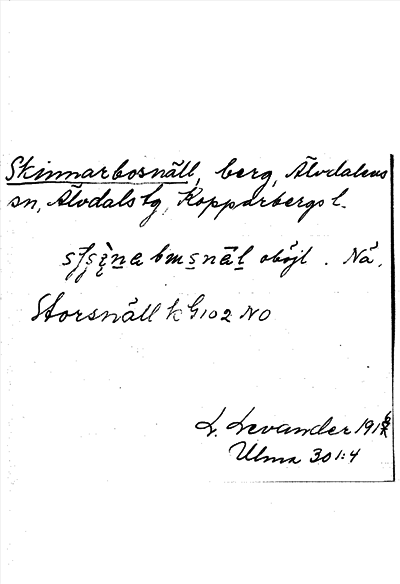 Skinnarbosnäll, berg, Älvdalens
sn, Älvdals tg, Kopparbergs l.
oböjt. Nå.
Storsnäll k G102 NO
L. Levander 191
Ulma 301:4